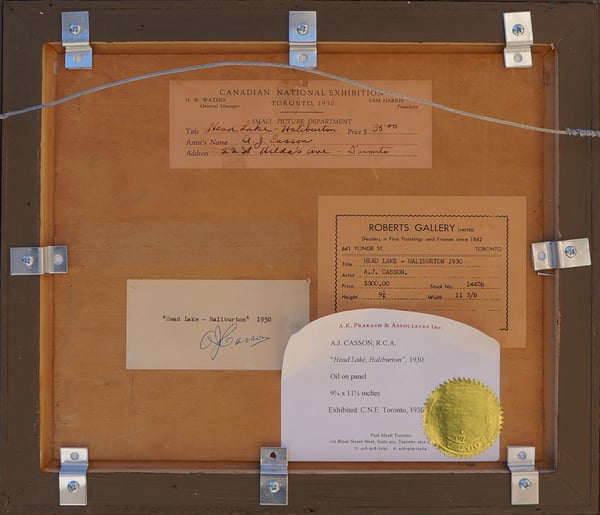 CANADIAN NATIONAL EXHIBITION
TORONTO, 1930
H. W. WATERS
General Manager
SAM HARRIS
President
SMALL PICTURE DEPARTMENT
Title Head Lake - Haliburton Price $ 35.00
Artist's Name A. J. Casson
Address 22 St Hilda's Ave - Toronto
ROBERTS GALLERY LIMITED
Dealers in Fine Paintings and Frames since 1842
641 YONGE ST. TORONTO
Title HEAD LAKE - HALIBURTON 1930
Artist A.J. CASSON.
Price $300.00 Stock No. 1445b
Height 9¼ Width 11 3/8
"Head Lake - Haliburton" 1930
A J Casson
A.K. PRAKASH & ASSOCIATES INC.
A.J. CASSON, R.C.A.
"Head Lake, Haliburton", 1930
Oil on panel
9¼ x 11½ inches
Exhibited: C.N.E. Toronto, 1930
Park Hyatt Toronto
Bloor Street West, Suite Toronto